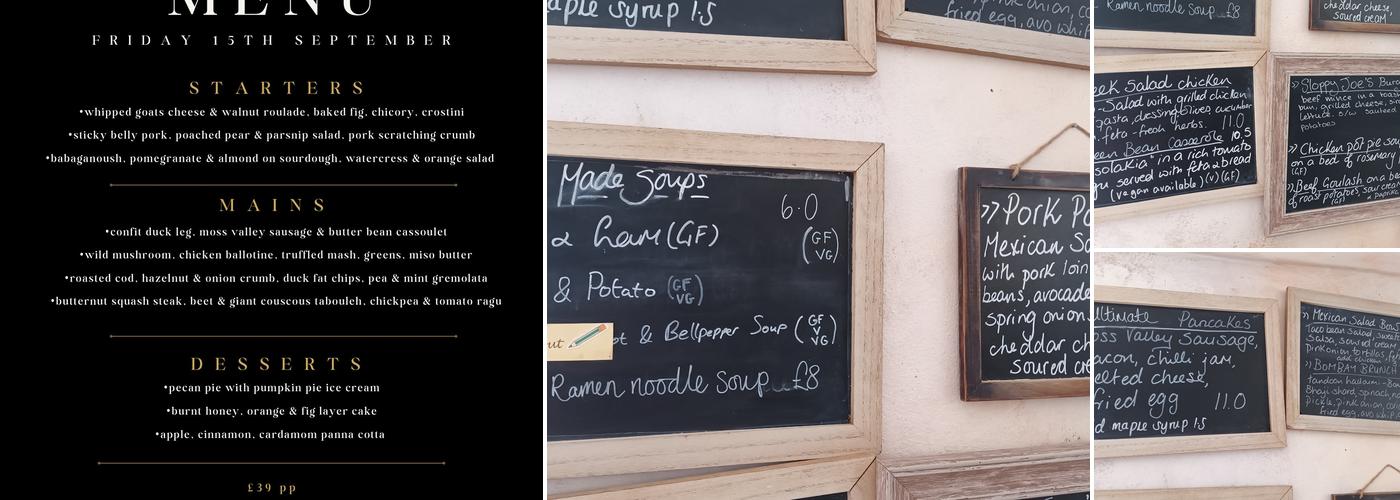 MENU
FRIDAY 15TH SEPTEMBER
STARTERS
•whipped goats cheese & walnut roulade, baked fig, chicory, crostini
•sticky belly pork, poached pear & parsnip salad, pork scratching crumb
•babaganoush, pomegranate & almond on sourdough, watercress & orange salad
MAINS
•confit duck leg, moss valley sausage & butter bean cassoulet
•wild mushroom, chicken ballotine, truffled mash, greens, miso butter
•roasted cod, hazelnut & onion crumb, duck fat chips, pea & mint gremolata
•butternut squash steak, beet & giant couscous tabouleh, chickpea & tomato ragu
DESSERTS
•pecan pie with pumpkin pie ice cream
•burnt honey, orange & fig layer cake
•apple, cinnamon, cardamom panna cotta
£39 pp
aple syrup 1.5
pink onion, co
fried egg, avo whip
Made Soups
6.0
& ham (GF)
(GF VG)
& Potato (GF VG)
ot & Bellpepper Soup (GF V VG)
Ramen noodle soup...£8
>> Pork Po
Mexican Sa
with pork loin
beans, avocado
spring onions
cheddar ch
soured cre
Ramen noodle soup...£8
cheddar cheese,
soured cream
eek Salad chicken
-Salad with grilled chicken
gasta, dessing, olives, cucumber
-feta-fresh herbs. 11.0
een Bean Casserole 10.5
solakia" in a rich tomato
served with feta & bread
(vegan available) (v) (GF)
>> Sloppy Joe's Burg
beef mince in a toast
bun, grilled cheese,
lettuce. s/w sauteed
potatoes
>> Chicken pot pie sou
on a bed of rosemary
(GF)
>> Beef Goulash on a bed
of roast potatoes, sour cream
(GF) & paprika
Ultimate Pancakes
oss Valley Sausage,
acon, chilli jam,
elted cheese,
fried egg 11.0
d maple syrup 1.5
>> Mexican Salad Bow
Taco bean Salad, sweet
Salsa, soured cream,
Pink onion tortillas
add chicken
>> BOMBAY BRUNCH
tandoori halloumi
Bhaji shard, spinach,
Pickle, pink onion, co
fried egg, avo whip